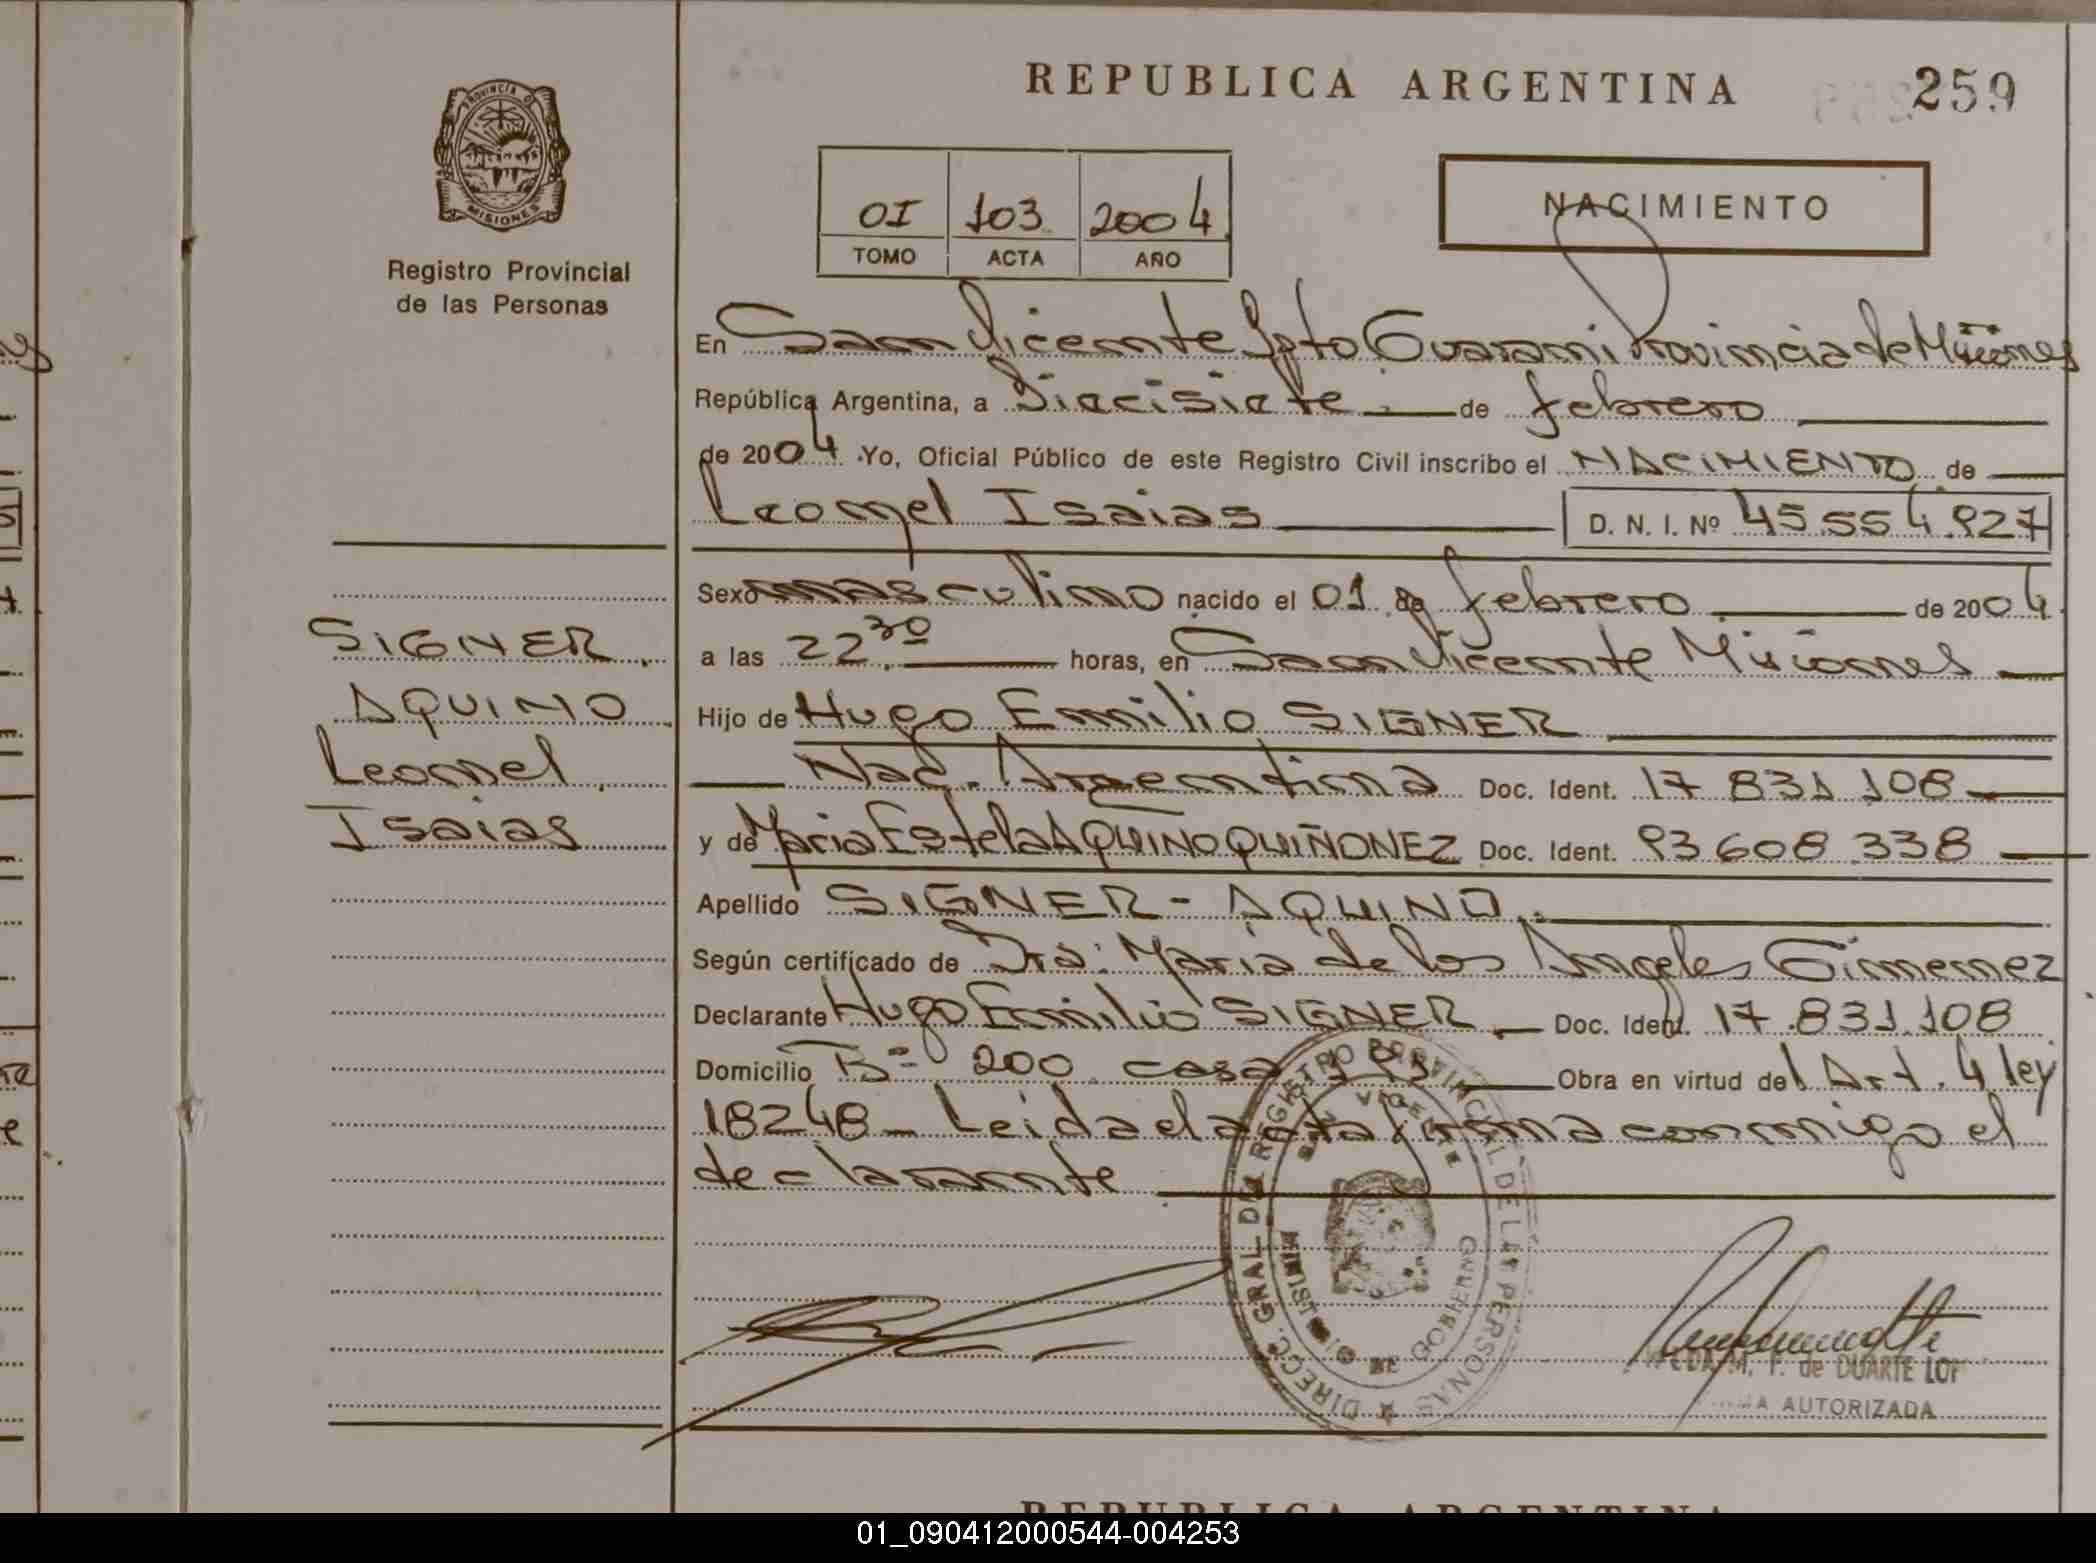 REPUBLICA ARGENTINA 259
PROVINCIA DE
MISIONES
Registro Provincial
de las Personas
01 103 2004
TOMO ACTA AÑO
NACIMIENTO
En San Vicente Dpto Guarani Provincia de Misiones
República Argentina, a Diecisiete de febrero
de 2004 Yo, Oficial Público de este Registro Civil inscribo el NACIMIENTO de
Leonel Isaias D. N. I. Nº 45.554.927
Sexo masculino nacido el 01 de febrero de 2004
a las 22 30 horas, en San Vicente Misiones
Hijo de Hugo Emilio SIGNER
Nac. Argentina Doc. Ident. 17 831 108
y de Maria Estela AQUINO QUIÑONEZ Doc. Ident. 93 608 338
Apellido SIGNER - AQUINO.
Según certificado de Dra: Maria de los Angeles Gimenez
Declarante Hugo Emilio SIGNER Doc. Ident. 17.831.108
Domicilio Bº 200 casa Obra en virtud del Art. 4 ley
18248 - Leida el acta firma conmigo el
declarante
SIGNER
AQUINO
Leonel
Isaias
DIRECC. GRAL. DEL REGISTRO PROVINCIAL DE LAS PERSONAS
MINISTERIO DE GOBIERNO
M. F. de DUARTE
AUTORIZADA
REPUBLICA ARGENTINA
01_090412000544-004253